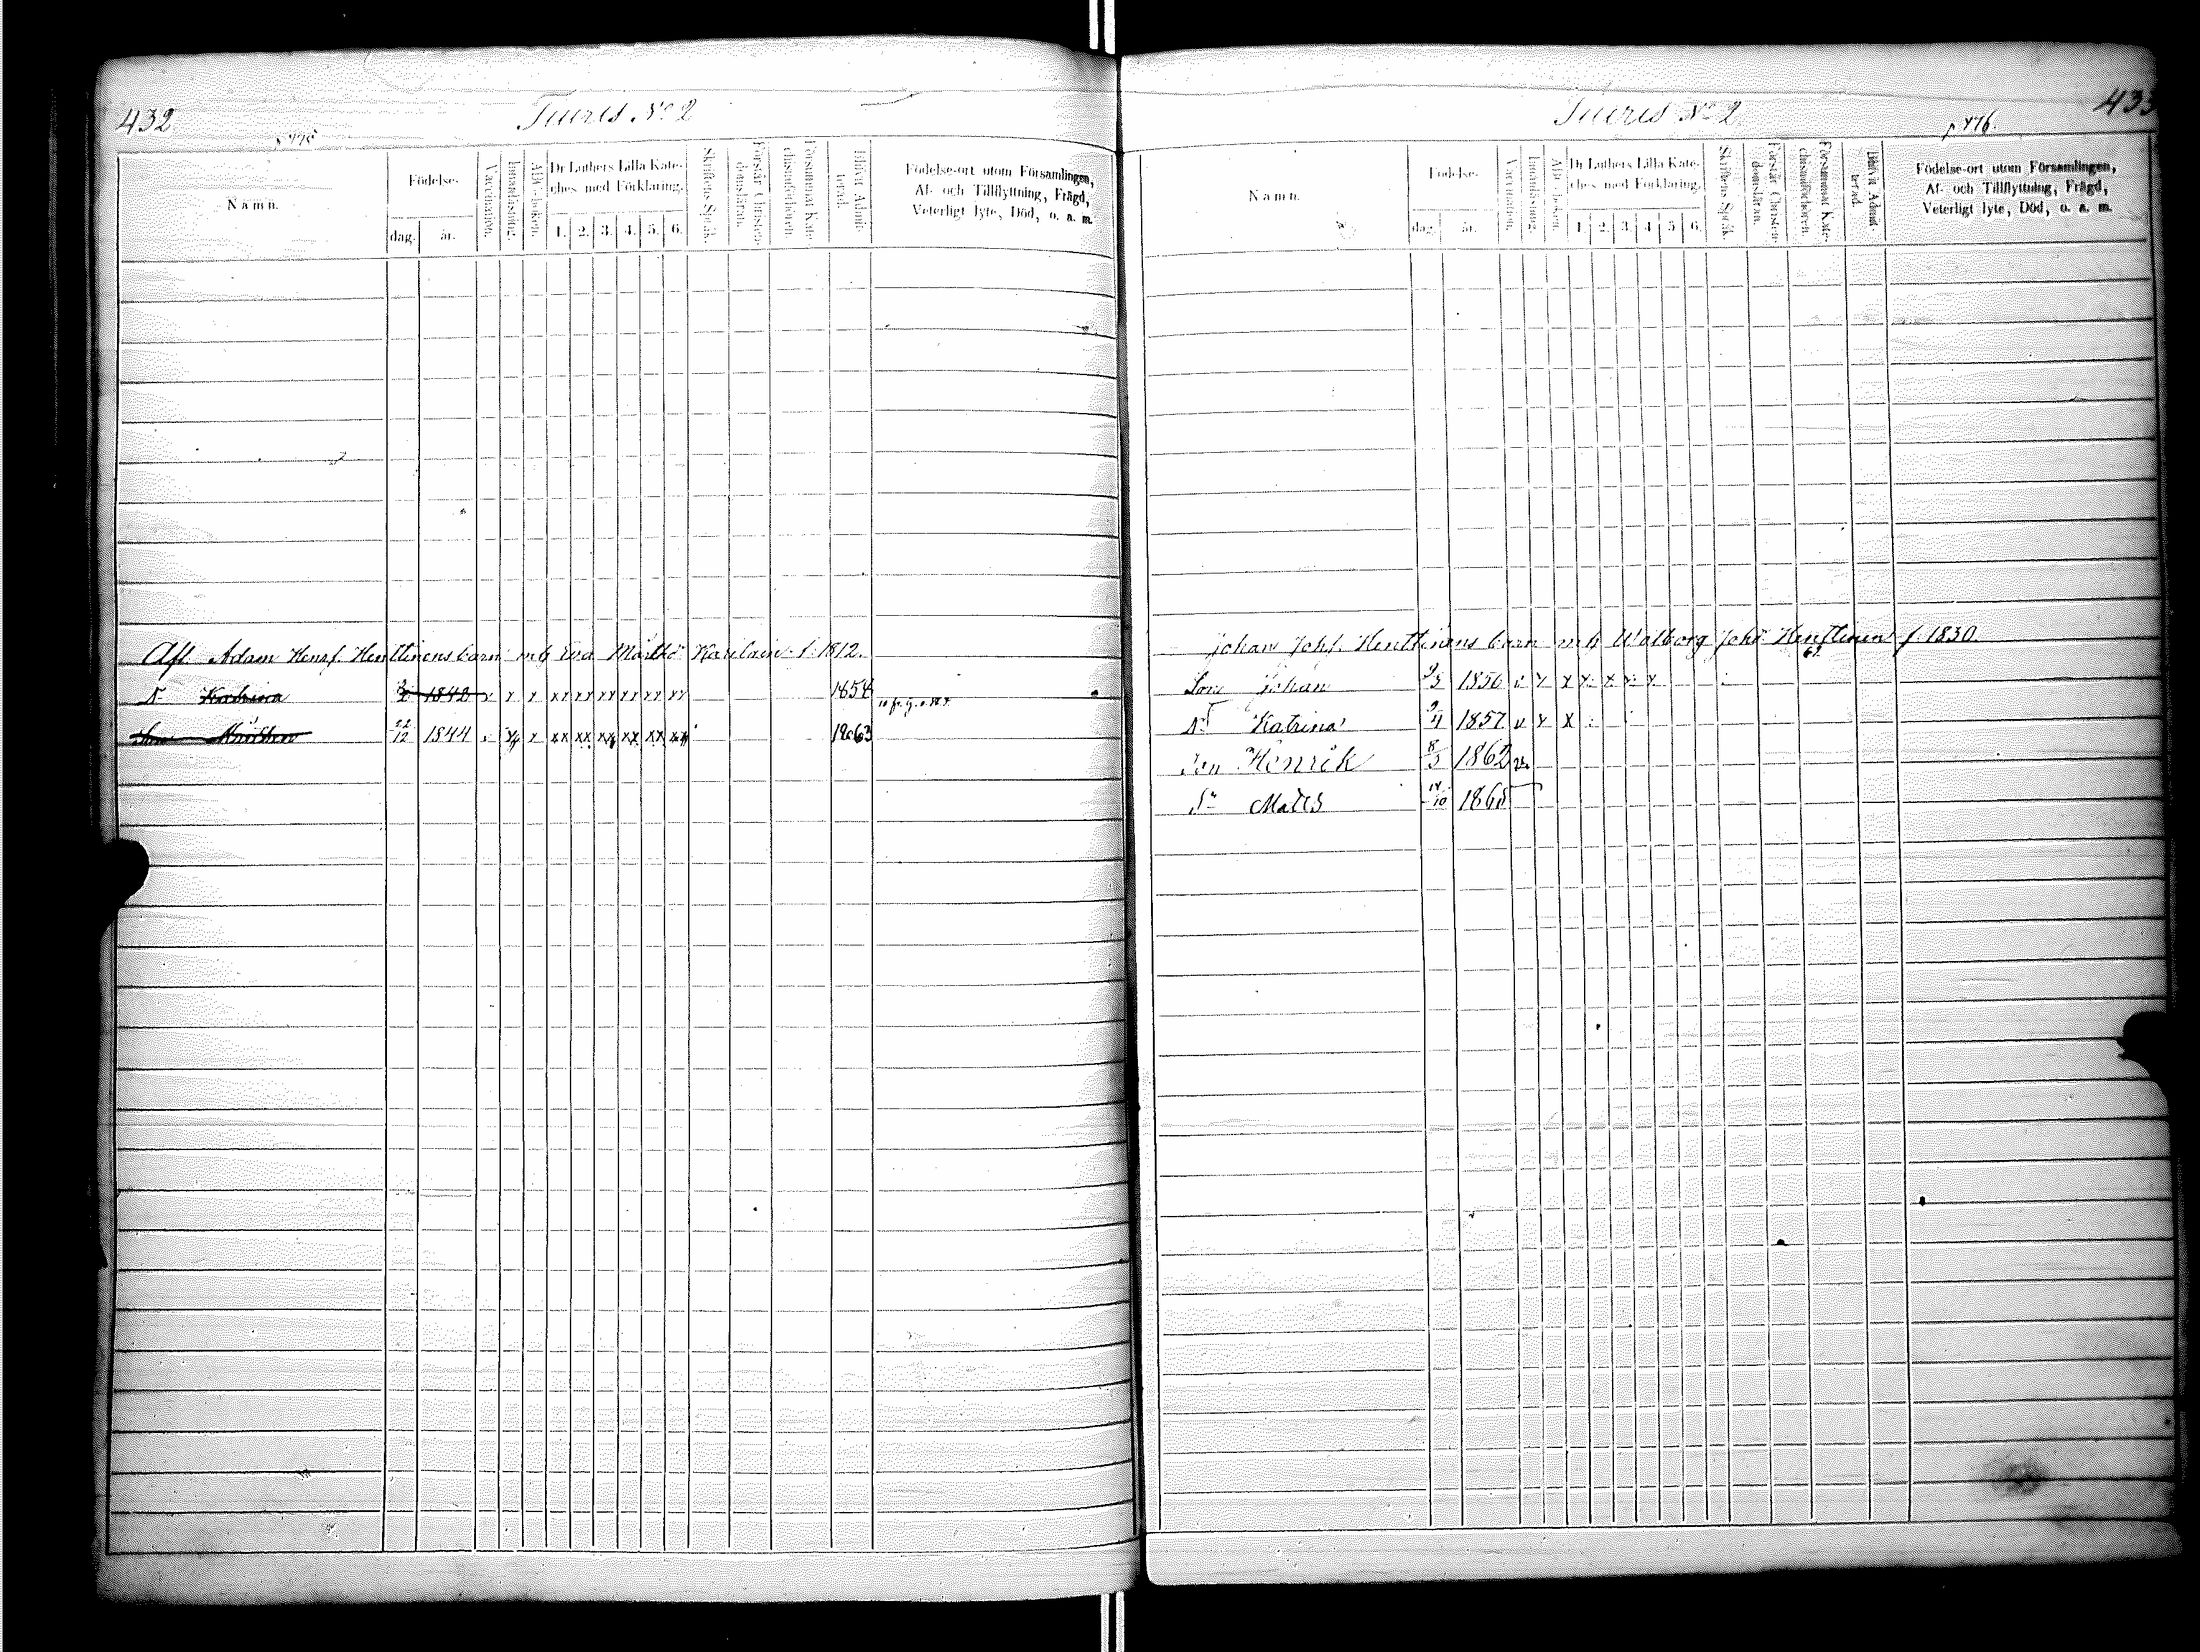 432
Tiuris No 2
p. 475
Namn.
Födelse-
dag.
år.
Vaccination.
Innanläsning.
ABC-boken.
Dr Luthers Lilla Kate-
ches med Förklaring.
1. 2. 3. 4. 5. 6.
Skriftens Språk.
Förstår Christen-
domsläran.
Försummat Kate-
chismiförhören.
Blifvit Admit-
terad.
Födelse-ort utom Församlingen,
Af- och Tillflyttning, Frägd,
Veterligt lyte, Död, o. a. m.
Afl. Adam Henrs. Henttinens barn m. h. Eva f. 1812.
Dr Katrina 2 1842 x x xx xx xx xx xx xx 1858
22/12 1844 x xx xx xx xx xx xx 1863
433
Tiuris No 2
p. 476.
Namn.
Födelse-
dag.
år.
Vaccination.
Innanläsning.
ABC-boken.
Dr Luthers Lilla Kate-
ches med Förklaring.
1. 2. 3. 4. 5. 6.
Skriftens Språk.
Förstår Christen-
domsläran.
Försummat Kate-
chismiförhören.
Blifvit Admit-
terad.
Födelse-ort utom Församlingen,
Af- och Tillflyttning, Frägd,
Veterligt lyte, Död, o. a. m.
Johan Johs. Henttinens barn m. h. Walborg Johsdr Henttinen f. 1830.
Son Johan 9/3 1850 v x x x x x x
Dr Katrina 9/4 1857 v x x
Son Henrik 8/3 1862 v.
Sn Matts 14/10 1865